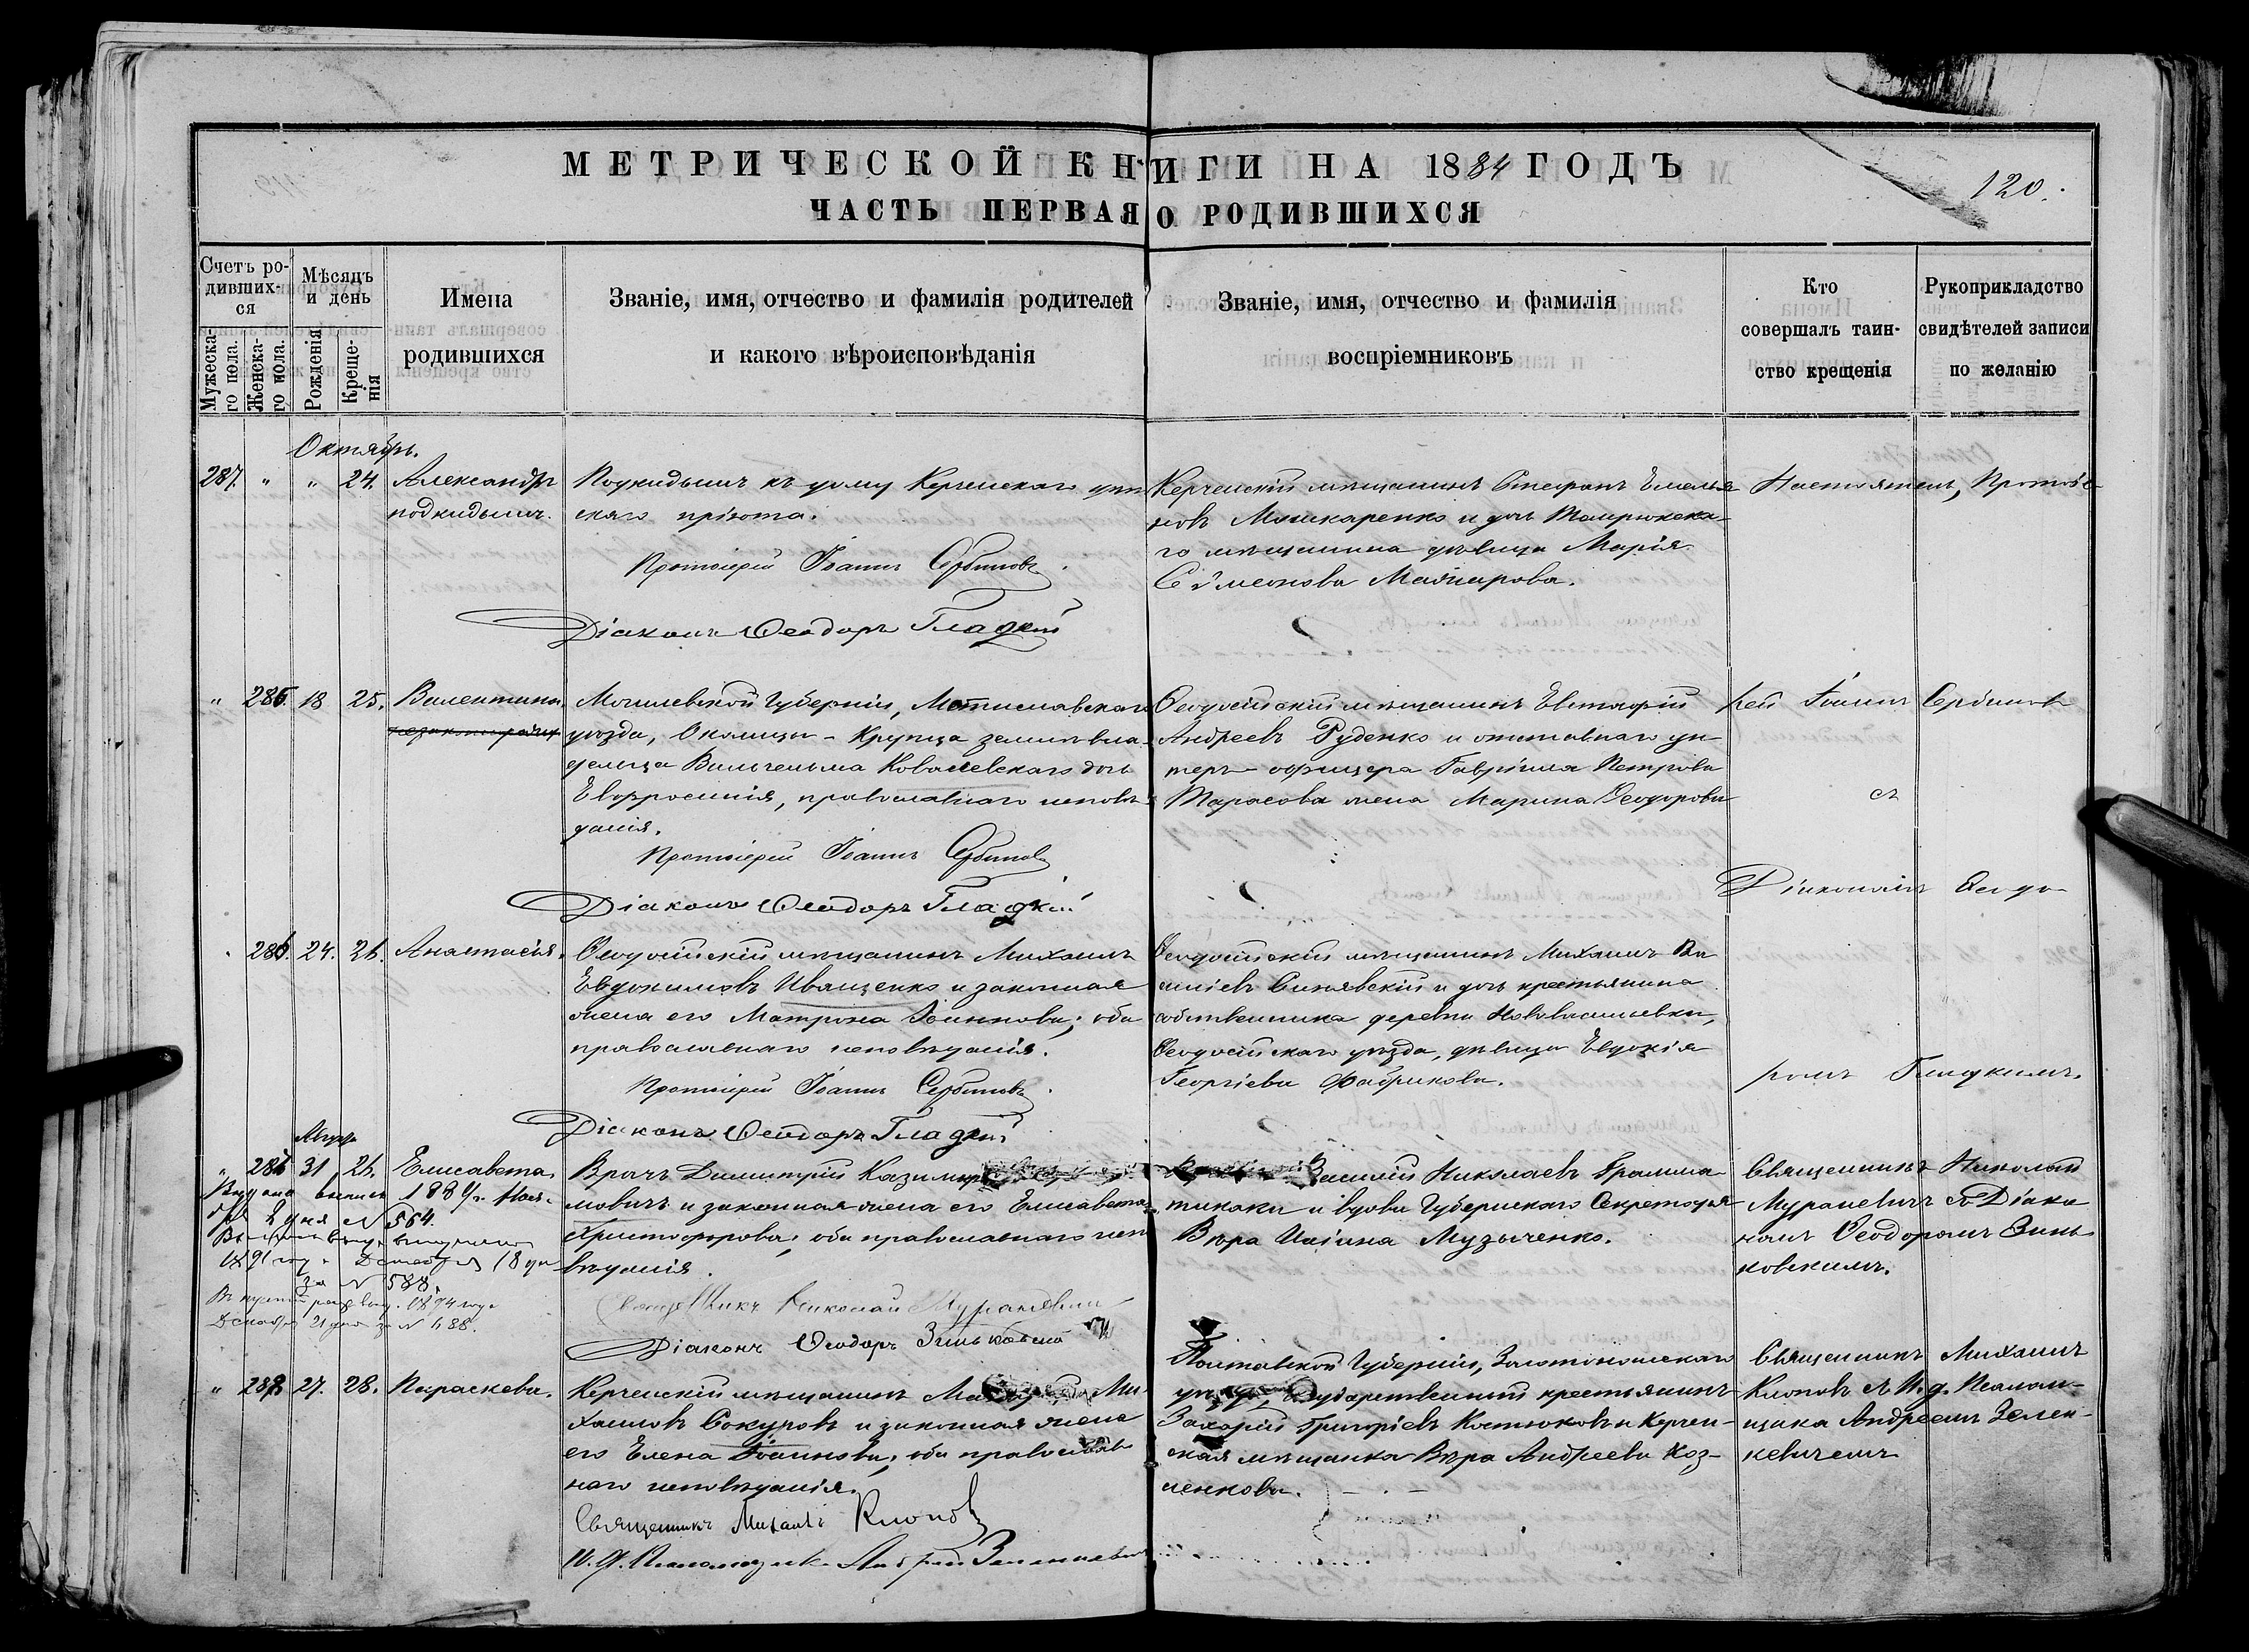 МЕТРИЧЕСКОЙ КНИГИ НА 1884 ГОДЪ
120.
ЧАСТЬ ПЕРВАЯ О РОДИВШИХСЯ
Счетъ родившихся
Мужеска-
го пола.
Женска-
го пола.
Мѣсяцъ
и день
Рожденія
Креще-
нія
Имена
родившихся
Званіе, имя, отчество и фамилія родителей
и какого вѣроисповѣданія
Званіе, имя, отчество и фамилія
воспріемниковъ
Кто
совершалъ таин-
ство крещенія
Рукоприкладство
свидѣтелей записи
по желанію
Октябрь.
287. " " 24.
Александръ
подкидышъ.
Подкидышъ къ дому Керченскаго
скаго пріюта.
Протоіерей Іоаннъ Сербиновъ
Діаконъ Ѳеодоръ Гладкій
Керченскій мѣщанинъ Стефанъ Емелья
новъ Мошкаренко и дочь Темрюкска-
го мѣщанина дѣвица Марія
Сѵмеонова
Настоятель, Протоіе
" 285. 18 25.
Валентина
Могилевской Губерніи, Мстиславскаго
уѣзда, Околицы - Крупца землевла-
дельца Вильгельма Ковалевскаго дочь
Евфросинія, православнаго исповѣ-
данія.
Протоіерей Іоаннъ Сербиновъ
Діаконъ Ѳеодоръ Гладкій
Ѳеодосійскій мѣщанинъ Евстафій
Андреевъ Руденко и отставнаго ун-
теръ-офицера Гавріила Петрова
Тарасова жена Марина Ѳеодорова
рей Іоаннъ Сербиновъ
съ
Діакономъ Ѳеодо
" 286. 24. 26.
Анастасія.
Ѳеодосійскій мѣщанинъ Михаилъ
Евдокимовъ Иващенко и законная
жена его Матрона Іоаннова; оба
православнаго исповѣданія.
Протоіерей Іоаннъ Сербиновъ
Діаконъ Ѳеодоръ Гладкій
Ѳеодосійскій мѣщанинъ Михаилъ Ва
силіевъ Синявскій и дочь крестьянина
собственника деревни Нововасильевки,
Ѳеодосійскаго уѣзда, дѣвица Евдокія
Георгіева Фабрикова.
ромъ Гладкимъ.
" 31 26.
Елисавета.
Выдана выпись 1884 г. Ноя-
бря 2 дня № 564.
1891 год. Декабря 18 дня
за № 588.
1894 года
Декабря 21 дня за № 688.
Врачъ Димитрій
мовичъ и законная жена его Елисавета
Христофорова; оба православнаго испо
вѣданія.
Священникъ Николай Мураневичъ
Діаконъ Ѳеодоръ Зиньковскій
Василій Николаевъ Грамма-
тикаки и вдова Губернскаго Секретаря
Вѣра Музыченко.
Священникъ Николай
Мураневичъ съ Діако
номъ Ѳеодоромъ Зинь-
ковскимъ.
" 27. 28.
Параскева.
Керченскій мѣщанинъ Ми-
хаиловъ Сокуровъ и законная жена
его Елена Іоаннова; оба православ
наго исповѣданія.
Священникъ Михаилъ Клоповъ
И. д. Псаломщика Андрей Зеленкевичъ
Полтавской Губерніи, Золотоношскаго
уѣзда, государственный крестьянинъ
Захарій Григоріевъ Костюковъ и Керчен-
ская мѣщанка Вѣра Андреева Коз-
ленкова.
Священникъ Михаилъ
Клоповъ съ И. д. Псалом-
щика Андреемъ Зелен-
кевичемъ